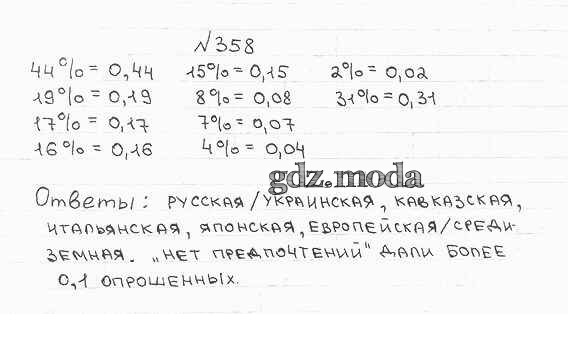 №358
44% = 0,44 15% = 0,15 2% = 0,02
19% = 0,19 8% = 0,08 31% = 0,31
17% = 0,17 7% = 0,07
16% = 0,16 4% = 0,04
gdz.moda
Ответы: русская/украинская, кавказская,
итальянская, японская, европейская/среди-
земная. „Нет предпочтений" дали более
0,1 опрошенных.